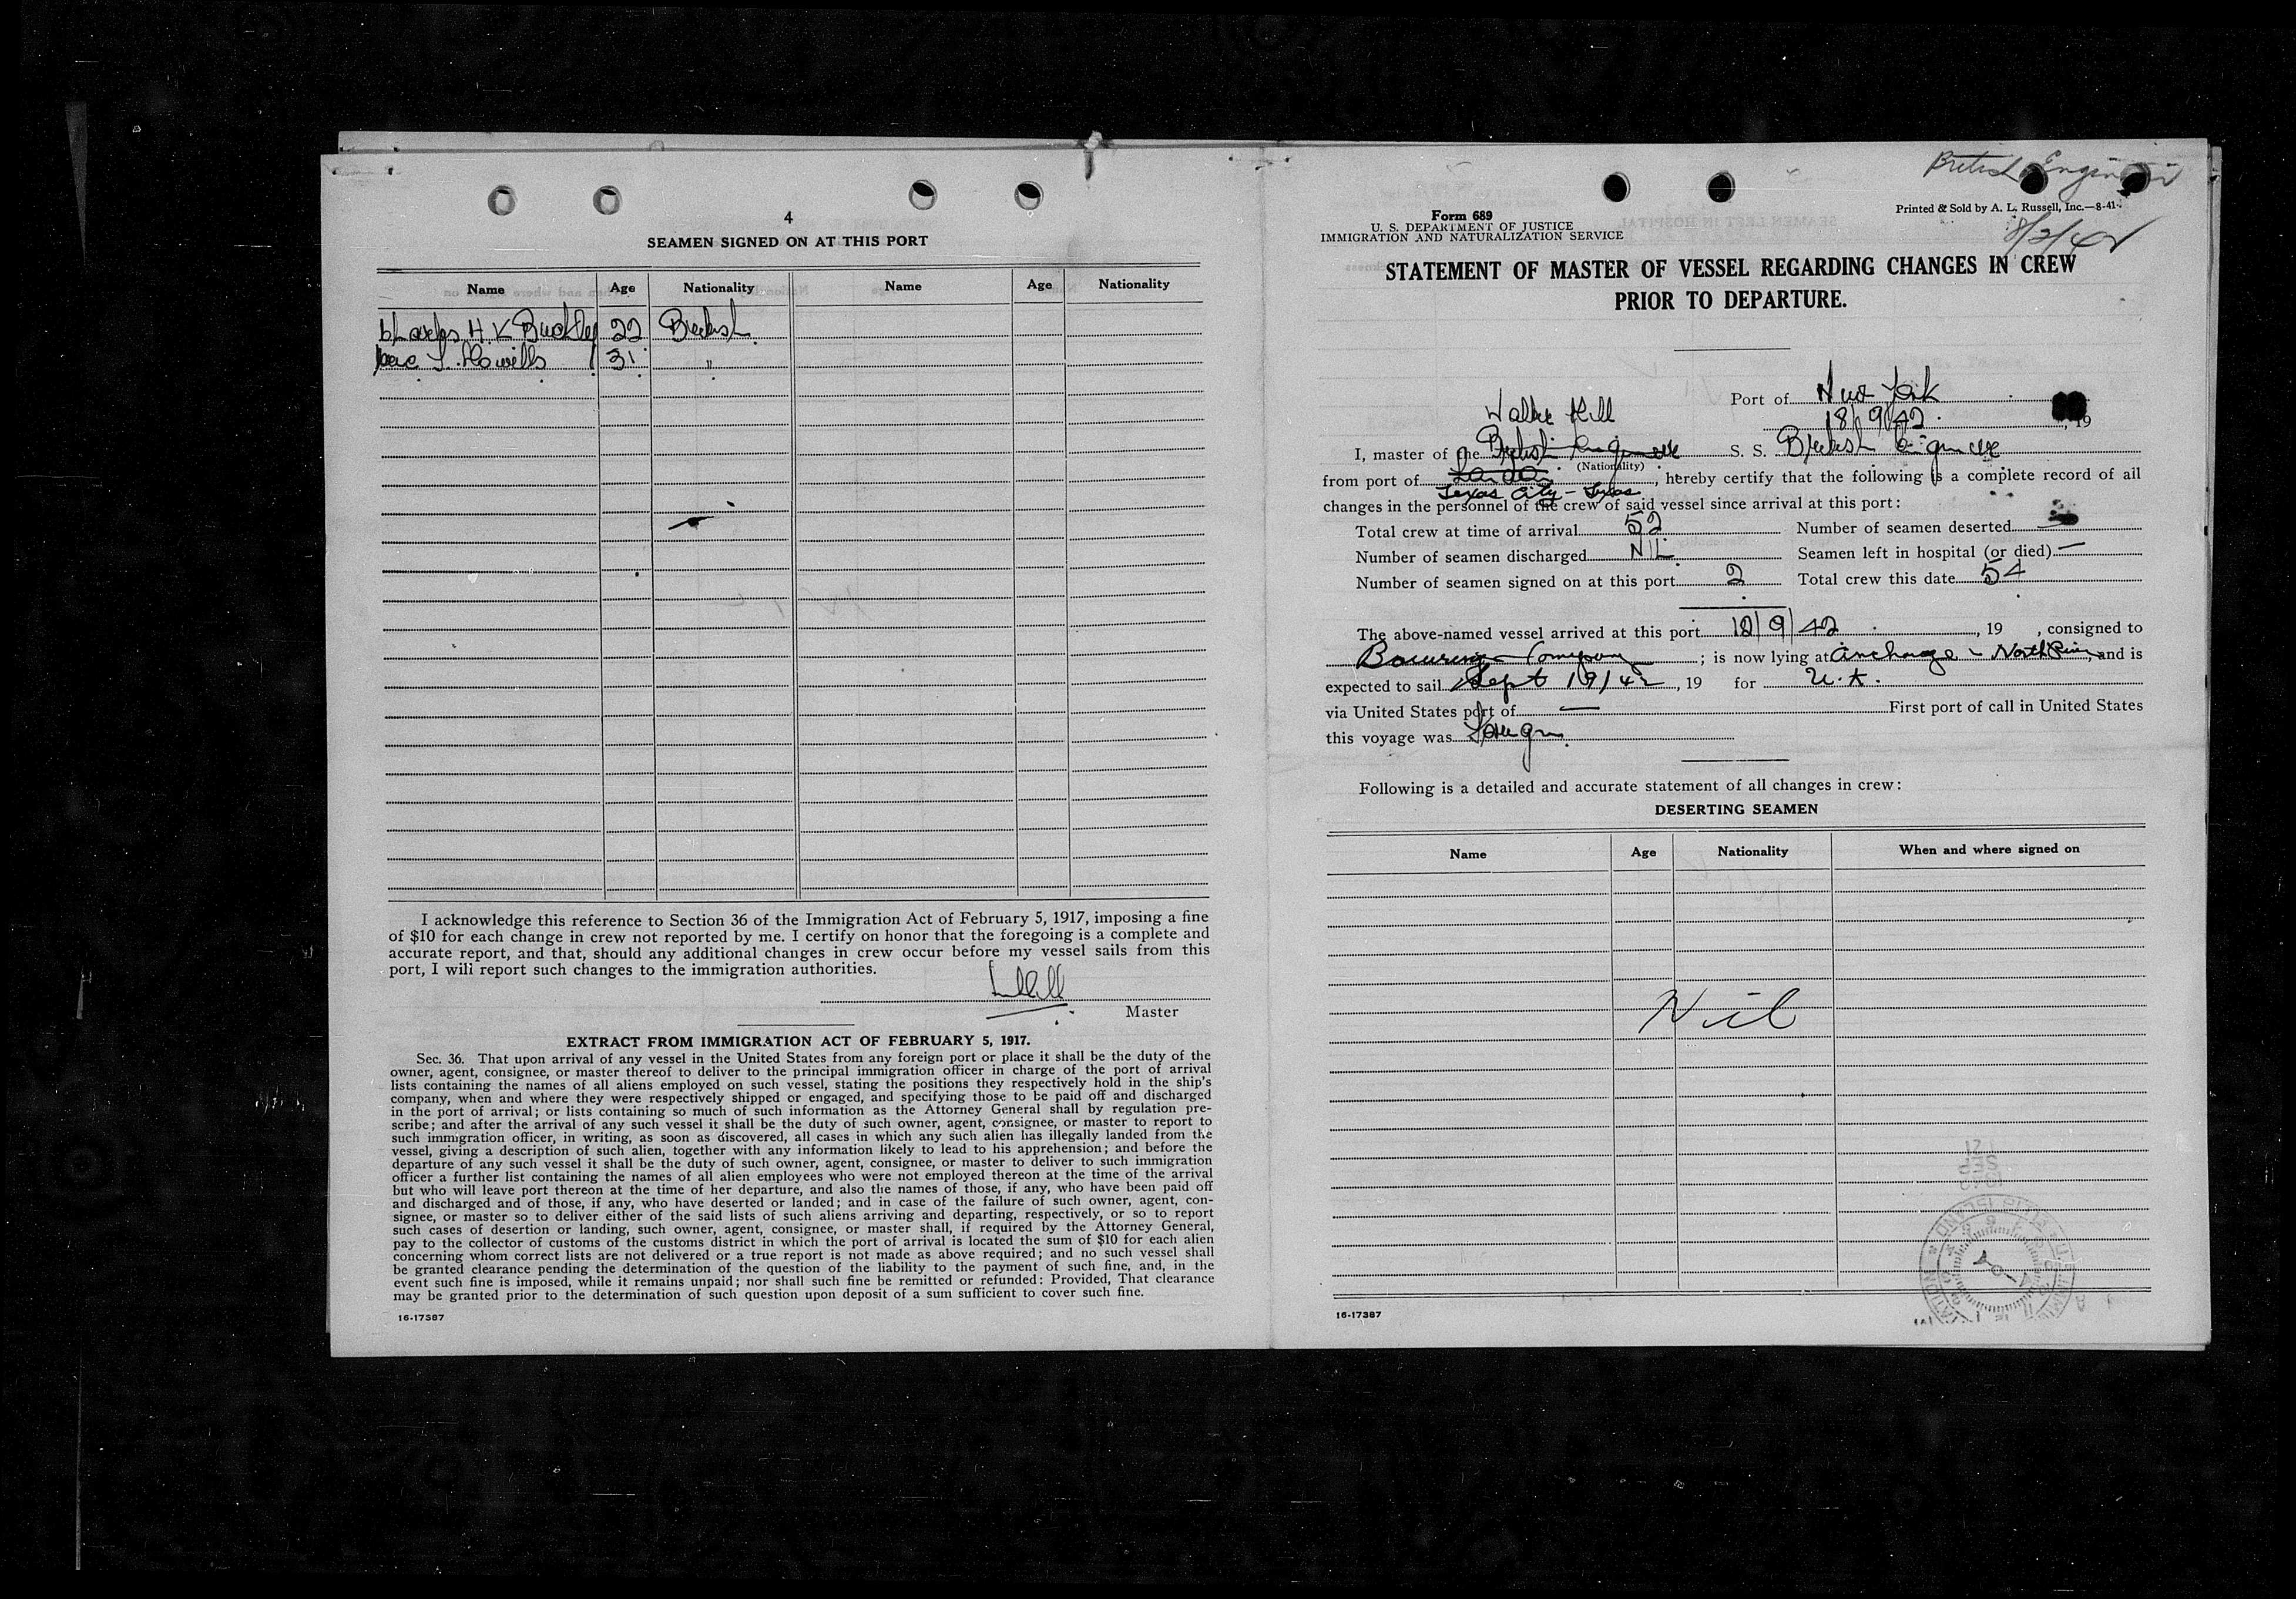 4
SEAMEN SIGNED ON AT THIS PORT
Name Age Nationality Name Age Nationality
Charles H. K Buckley 22 British
S. Howells 31 "
I acknowledge this reference to Section 36 of the Immigration Act of February 5, 1917, imposing a fine
of $10 for each change in crew not reported by me. I certify on honor that the foregoing is a complete and
accurate report, and that, should any additional changes in crew occur before my vessel sails from this
port, I will report such changes to the immigration authorities.
Master
EXTRACT FROM IMMIGRATION ACT OF FEBRUARY 5, 1917.
Sec. 36. That upon arrival of any vessel in the United States from any foreign port or place it shall be the duty of the
owner, agent, consignee, or master thereof to deliver to the principal immigration officer in charge of the port of arrival
lists containing the names of all aliens employed on such vessel, stating the positions they respectively hold in the ship's
company, when and where they were respectively shipped or engaged, and specifying those to be paid off and discharged
in the port of arrival; or lists containing so much of such information as the Attorney General shall by regulation pre-
scribe; and after the arrival of any such vessel it shall be the duty of such owner, agent, consignee, or master to report to
such immigration officer, in writing, as soon as discovered, all cases in which any such alien has illegally landed from the
vessel, giving a description of such alien, together with any information likely to lead to his apprehension; and before the
departure of any such vessel it shall be the duty of such owner, agent, consignee, or master to deliver to such immigration
officer a further list containing the names of all alien employees who were not employed thereon at the time of the arrival
but who will leave port thereon at the time of her departure, and also the names of those, if any, who have been paid off
and discharged and of those, if any, who have deserted or landed; and in case of the failure of such owner, agent, con-
signee, or master so to deliver either of the said lists of such aliens arriving and departing, respectively, or so to report
such cases of desertion or landing, such owner, agent, consignee, or master shall, if required by the Attorney General,
pay to the collector of customs of the customs district in which the port of arrival is located the sum of $10 for each alien
concerning whom correct lists are not delivered or a true report is not made as above required; and no such vessel shall
be granted clearance pending the determination of the question of the liability to the payment of such fine, and, in the
event such fine is imposed, while it remains unpaid; nor shall such fine be remitted or refunded: Provided, That clearance
may be granted prior to the determination of such question upon deposit of a sum sufficient to cover such fine.
16-17387
British Engineer
Form 689
Printed & Sold by A. L. Russell, Inc.—8-41
U. S. DEPARTMENT OF JUSTICE
IMMIGRATION AND NATURALIZATION SERVICE
STATEMENT OF MASTER OF VESSEL REGARDING CHANGES IN CREW
PRIOR TO DEPARTURE.
Port of New York
Hill 18/9/42. , 19
I, master of the British Engineer S. S. British Engineer
(Nationality)
from port of London, hereby certify that the following is a complete record of all
Texas City - Texas
changes in the personnel of the crew of said vessel since arrival at this port:
Total crew at time of arrival 52 Number of seamen deserted
Number of seamen discharged NIL Seamen left in hospital (or died) —
Number of seamen signed on at this port 2 Total crew this date 54
The above-named vessel arrived at this port 12/9/42 , 19 , consigned to
Bowring Company ; is now lying at anchorage - North River, and is
expected to sail Sept 19/42, 19 for U.K.
via United States port of — First port of call in United States
this voyage was
Following is a detailed and accurate statement of all changes in crew:
DESERTING SEAMEN
Name Age Nationality When and where signed on
Nil
16-17387